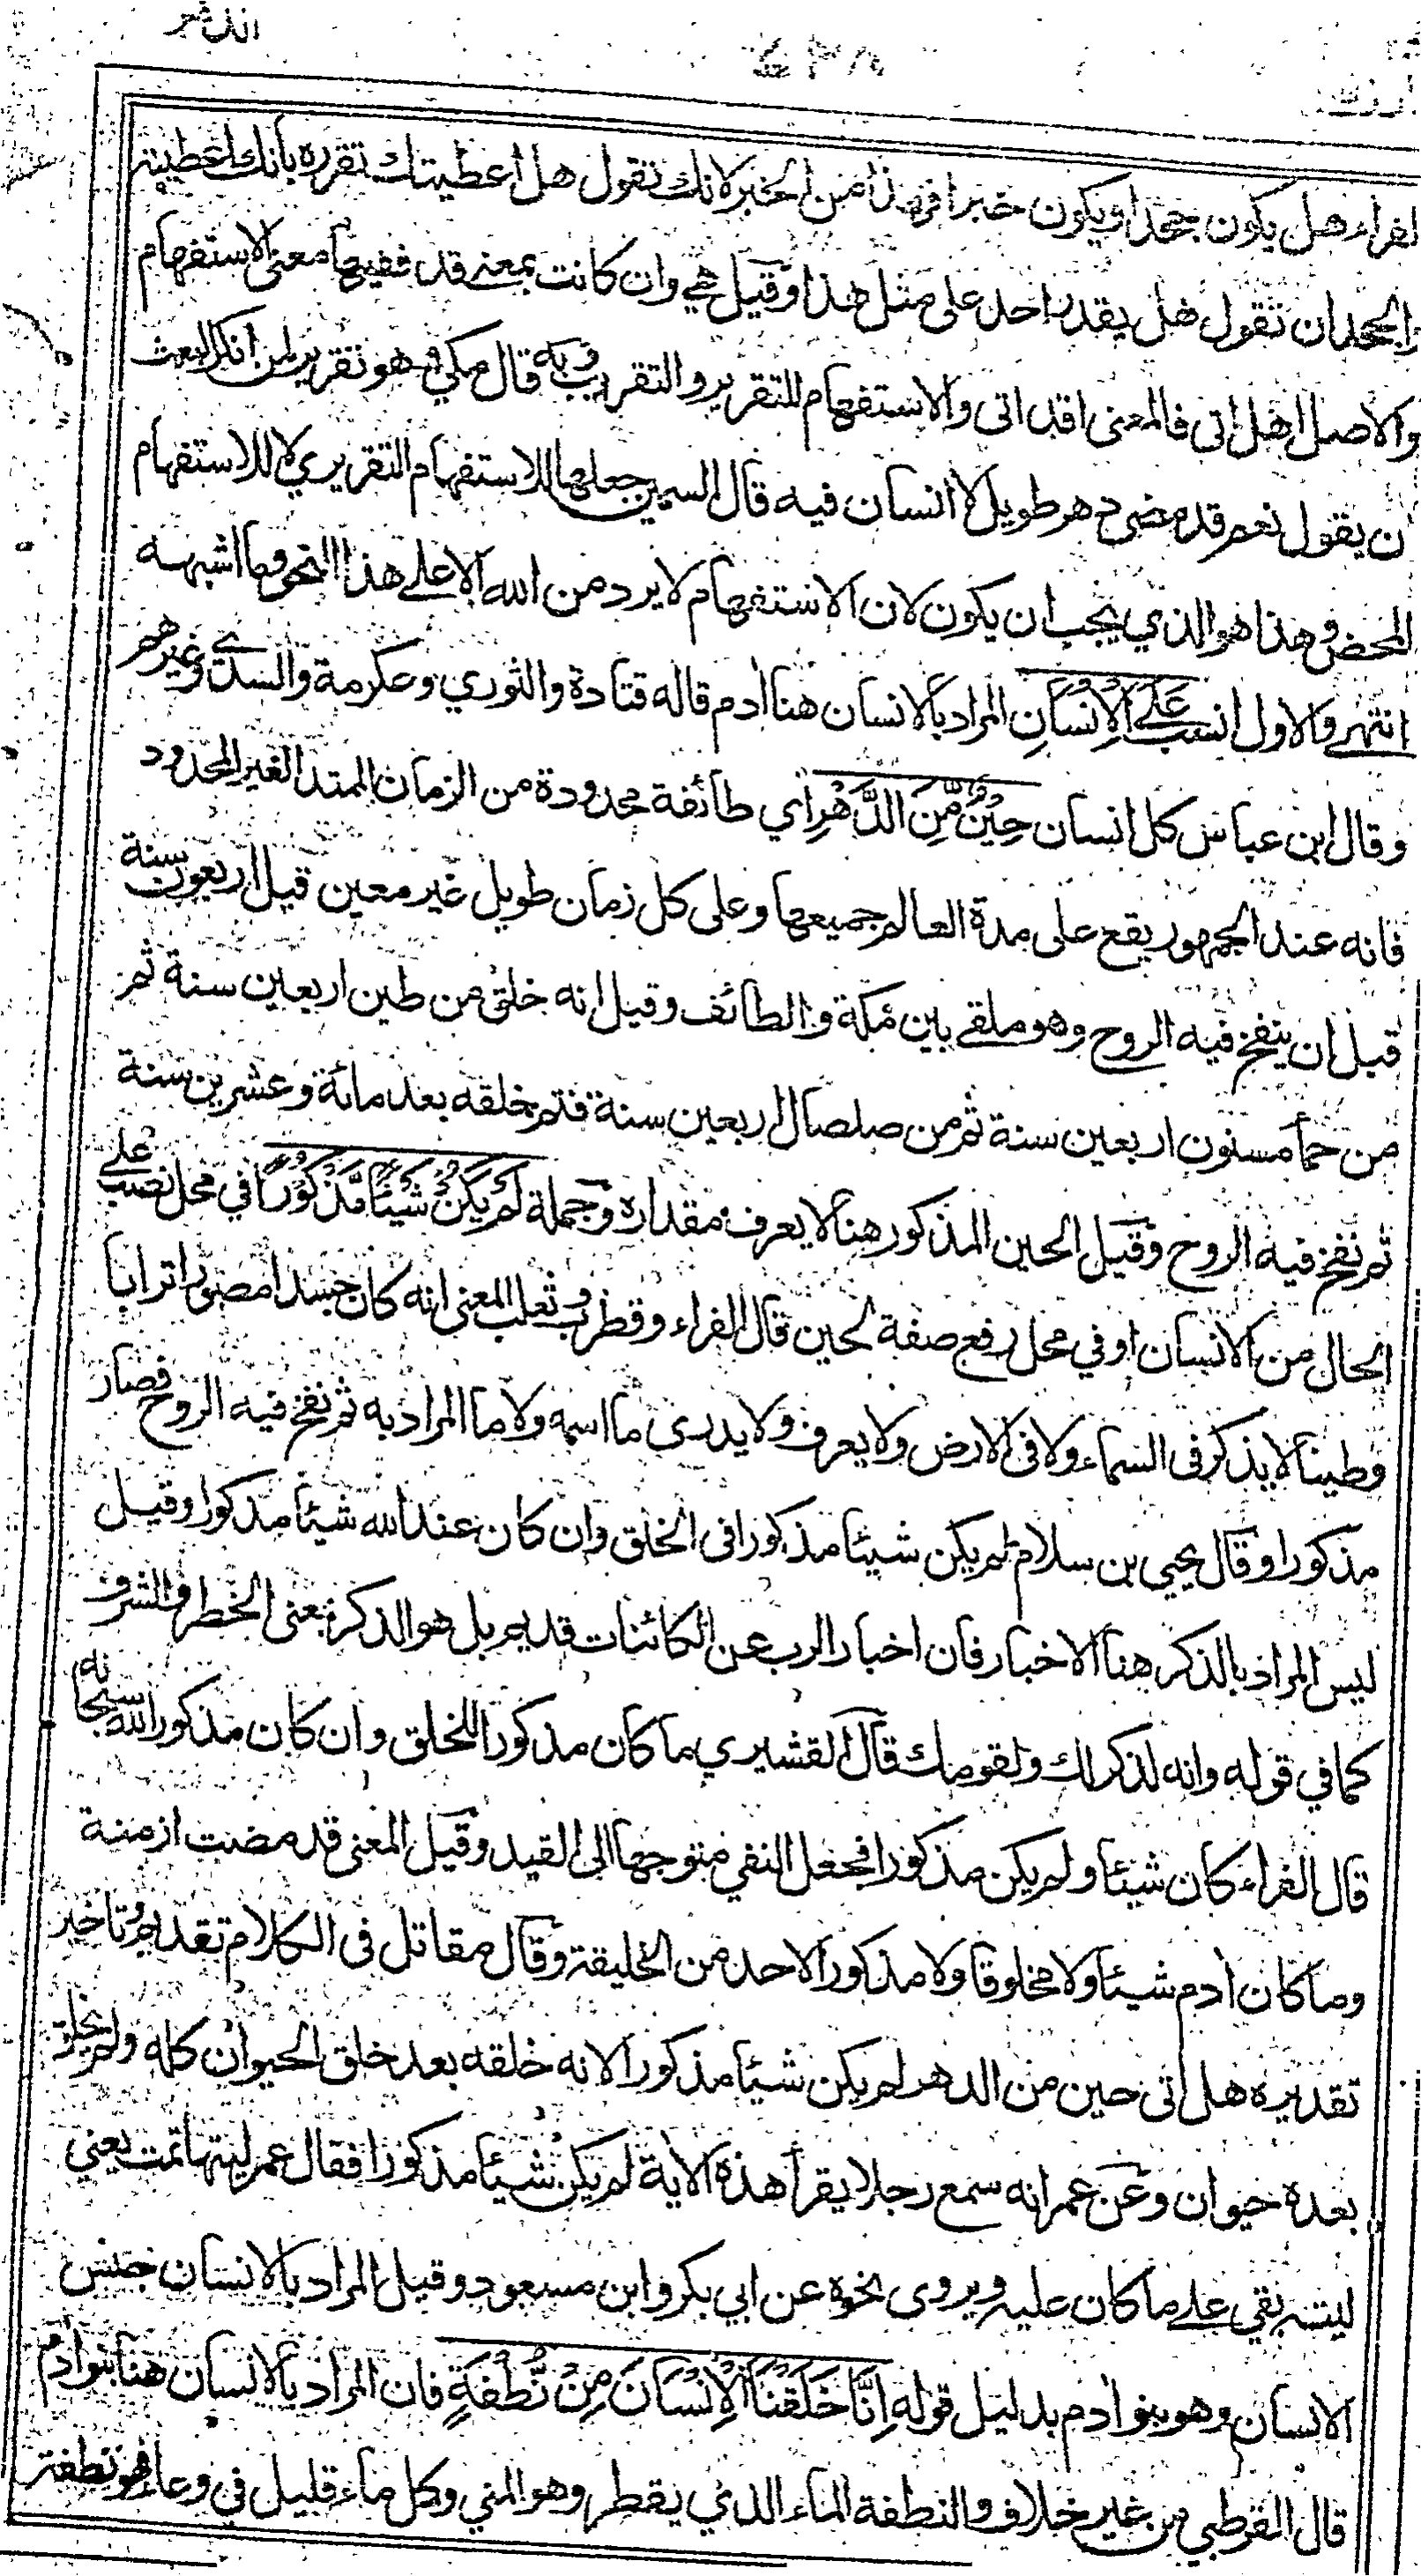 الفراء هل يكون جحدا ويكون خبرا فهذا من الخبر لانك تقول هل اعطيتك تقرره بانك اعطيته
والجحد ان تقول هل يقدر احد على مثل هذا وقيل هي وان كانت بمعنى قد ففيها معنى الاستفهام
والاصل اهل اتى فالمعنى اقد اتى والاستفهام للتقرير والتقريب وبه قال مكي وهو تقرير لمن انكر البعث
ن يقول نعم قد مضى دهر طويل لا انسان فيه قال السمين جعلها للاستفهام التقريري لا للاستفهام
المحض وهذا هو الذي يجب ان يكون لان الاستفهام لا يرد من الله الا على هذا النحو وما اشبهه
انتهى والاول انسب عَلَى الْإِنْسَانِ المراد بالانسان هنا ادم قاله قتادة والثوري وعكرمة والسدي وغيرهم
وقال ابن عباس كل انسان حِيْنٌ مِّنَ الدَّهْرِ اي طائفة محدودة من الزمان الممتد الغير المحدود
فانه عند الجمهور يقع على مدة العالم جميعها وعلى كل زمان طويل غير معين قيل اربعون سنة
قبل ان ينفخ فيه الروح وهو ملقى بين مكة والطائف وقيل انه خلق من طين اربعين سنة ثم
من حمأ مسنون اربعين سنة ثم من صلصال اربعين سنة فتم خلقه بعد مائة وعشرين سنة
ثم نفخ فيه الروح وقيل الحين المذكور هنا لا يعرف مقداره وجملة لَمْ يَكُنْ شَيْئًا مَّذْكُوْرًا في محل نصب على
الحال من الانسان او في محل رفع صفة لحين قال الفراء وقطرب وثعلب المعنى انه كان جسدا مصورا ترابا
وطينا لا يذكر فى السماء ولا فى الارض ولا يعرف ولا يدرى ما اسمه ولا ما المراد به ثم نفخ فيه الروح فصار
مذكورا وقال يحيى بن سلام لم يكن شيئا مذكورا فى الخلق وان كان عند الله شيئا مذكورا وقيل
ليس المراد بالذكر هنا الاخبار فان اخبار الرب عن الكائنات قديم بل هو الذكر بمعنى الخطر والشرف
كما في قوله وانه لذكر لك ولقومك قال القشيري ما كان مذكورا للخلق وان كان مذكورا لله سبحانه
قال الفراء كان شيئا ولم يكن مذكورا فجعل النفي متوجها الى القيد وقيل المعنى قد مضت ازمنة
وما كان ادم شيئا ولا مخلوقا ولا مذكورا لاحد من الخليقة وقال مقاتل فى الكلام تقديم وتاخير
تقديره هل اتى حين من الدهر لم يكن شيئا مذكورا لانه خلقه بعد خلق الحيوان كله ولم يخلق
بعده حيوان وعن عمر انه سمع رجلا يقرأ هذه الاية لم يكن شيئا مذكورا فقال عمر ليتها تمت يعني
ليته بقي على ما كان عليه ويروى نحوه عن ابي بكر وابن مسعود وقيل المراد بالانسان جنس
الانسان وهو بنو ادم بدليل قوله إِنَّا خَلَقْنَا الْإِنْسَانَ مِنْ نُّطْفَةٍ فان المراد بالانسان هنا بنو ادم
قال القرطبي من غير خلاف والنطفة الماء الذي يقطر وهو المني وكل ماء قليل في وعاء فهو نطفة